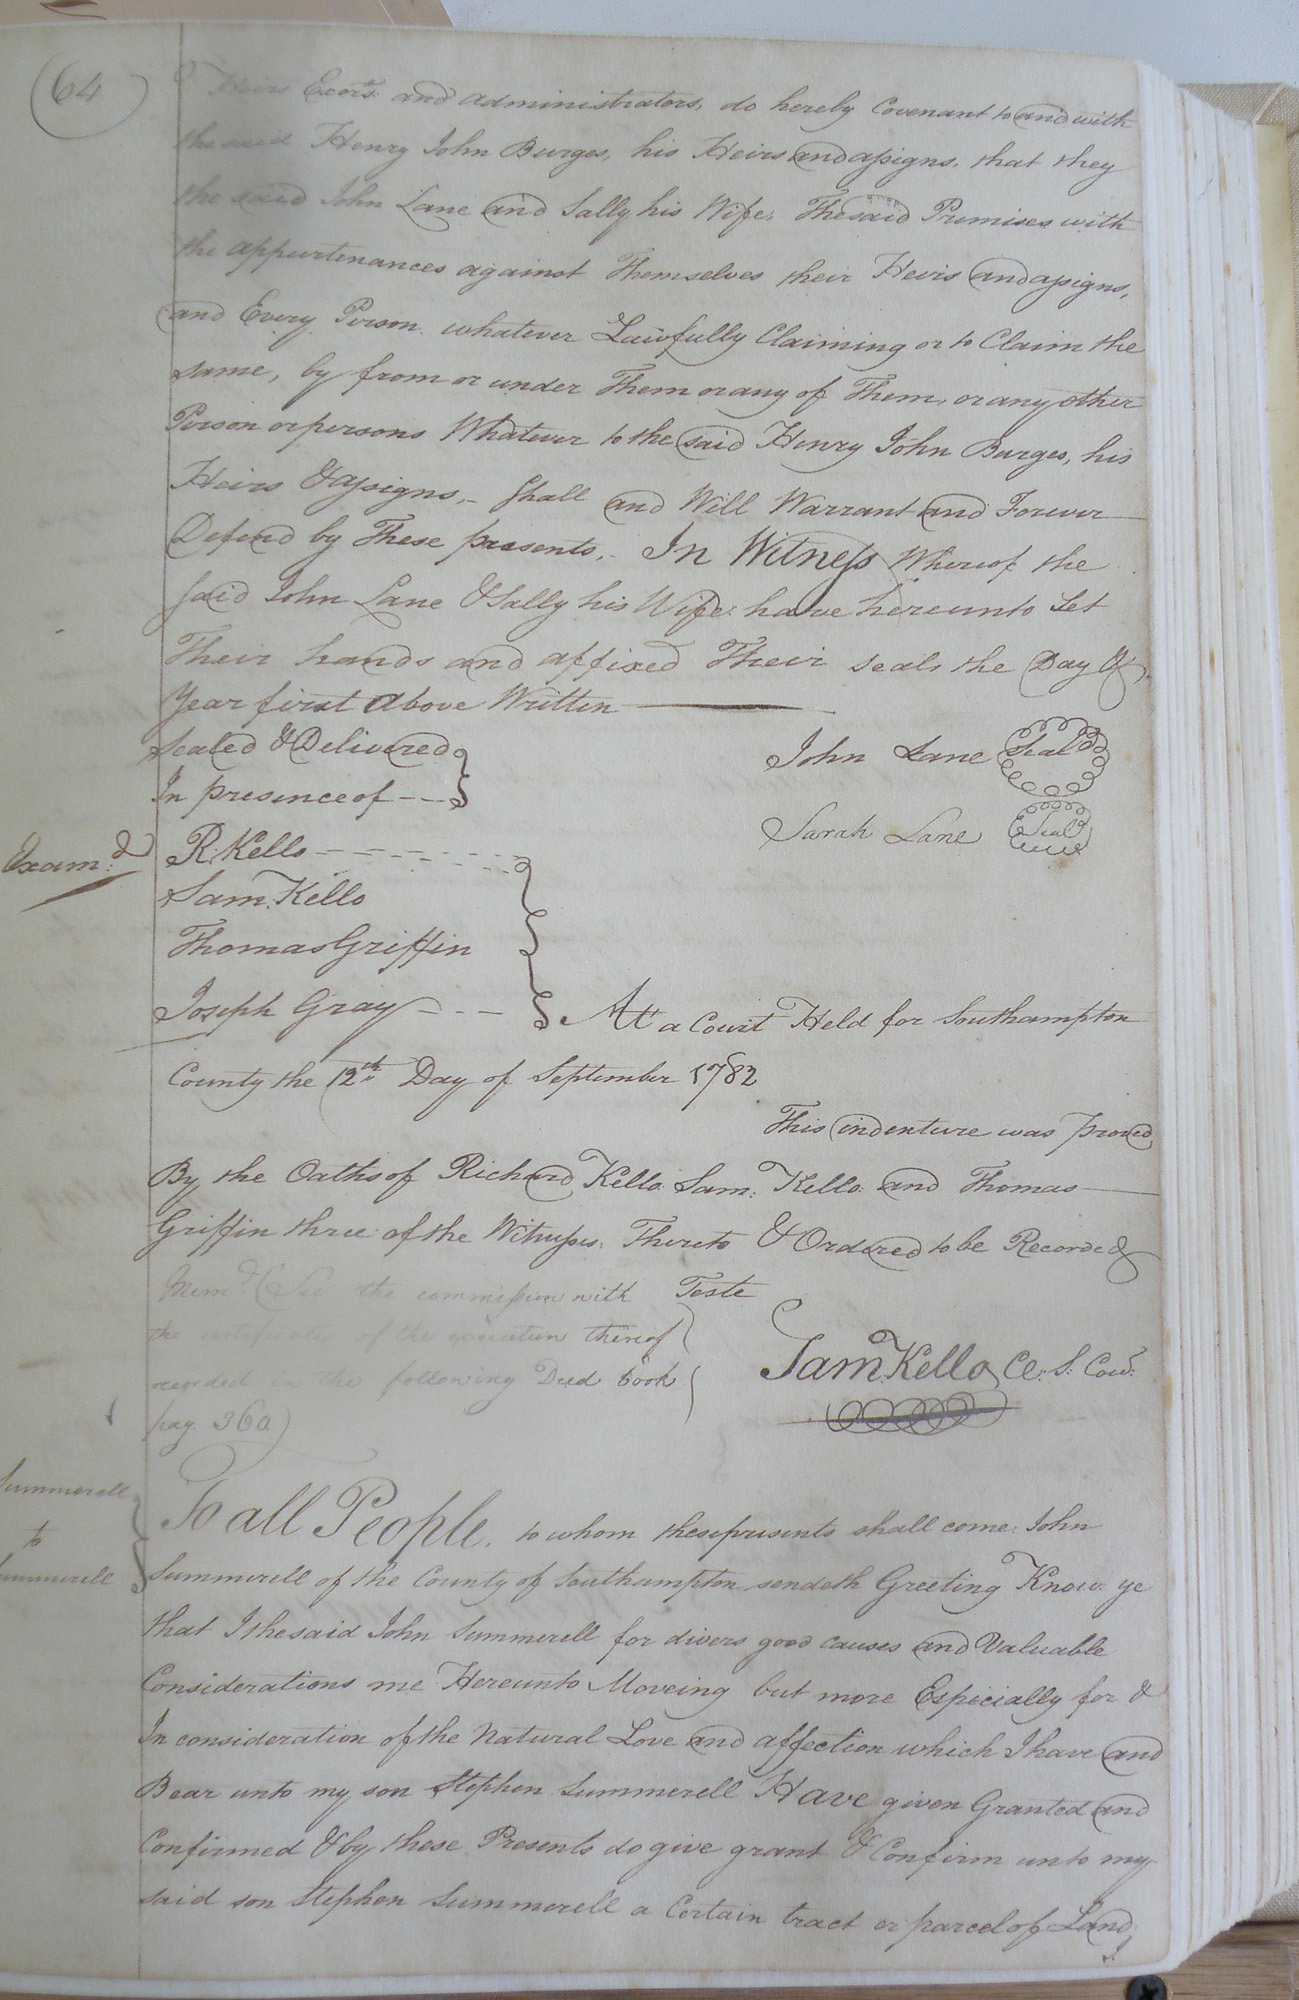 (64)
Heirs Exors. and administrators, do hereby Covenant to and with
the said Henry John Burges, his Heirs and assigns, that they
the said John Lane and Sally his Wife, The said Premises with
the appurtenances against Themselves their Heirs and assigns,
and Every Person whatever Lawfully Claiming or to Claim the
same, by from or under Them or any of Them, or any other
Person or persons Whatever to the said Henry John Burges, his
Heirs & assigns, - Shall and Will Warrant and Forever
Defend by These presents, - In Witness Whereof the
said John Lane & Sally his Wife have hereunto Set
Their hands and affixed Their seals the Day &
Year first above Written
Sealed & Delivered
In presence of
John Lane Seal
Sarah Lane Seal
Exam.d
R. Kello
Sam. Kello
Thomas Griffin
Joseph Gray
At a Court Held for Southampton
County the 12th Day of September 1782
This indenture was proved
By the Oaths of Richard Kello Sam. Kello and Thomas
Griffin three of the Witnesses Thereto & Ordered to be Recorded
Mem.d (See the commission with
the certificate of the execution thereof
recorded in the following Deed book
pag 360)
Teste
Sam. Kello Cl. S. Cou.
Summerell
to
Summerell
To all People, to whom these presents shall come John
Summerell of the County of Southampton sendeth Greeting Know ye
that I the said John Summerell for divers good causes and Valuable
Considerations me Hereunto Moveing but more Especially for &
In consideration of the Natural Love and affection which I have and
Bear unto my son Stephen Summerell Have given Granted and
Confirmed & by these Presents do give grant & Confirm unto my
said son Stephen Summerell a Certain tract or parcel of Land